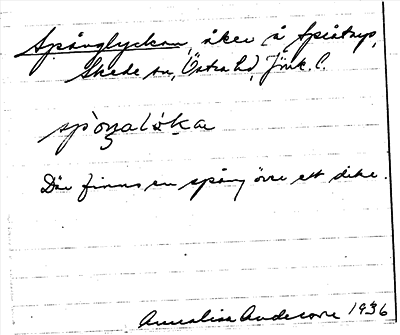 Spånglyckan, åker å Spiåtorp,
Skede sn, Östra hd, Jönk. l.
Där finns en spång över ett dike.
Annalisa Anderson 1936